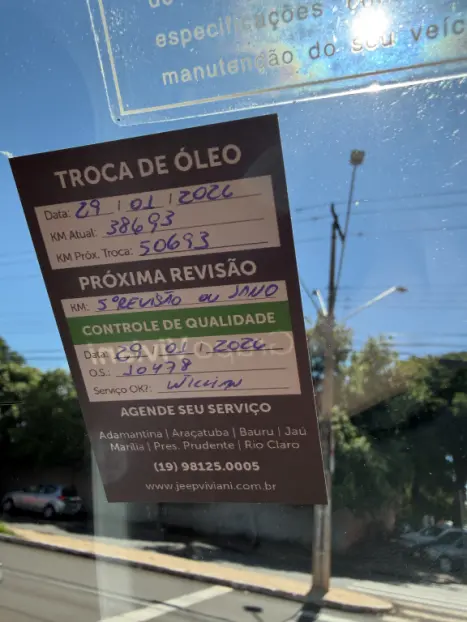 especificações
manutenção do seu veíc
TROCA DE ÓLEO
Data: 29 / 01 / 2026
KM Atual: 38693
KM Próx. Troca: 50693
PRÓXIMA REVISÃO
KM: 5ª REVISÃO ou 5ANO
CONTROLE DE QUALIDADE
Data: 29 01 2026
O.S.: 10478
Serviço OK?: Willian
AGENDE SEU SERVIÇO
Adamantina | Araçatuba | Bauru | Jaú
Marília | Pres. Prudente | Rio Claro
(19) 98125.0005
www.jeepviviani.com.br